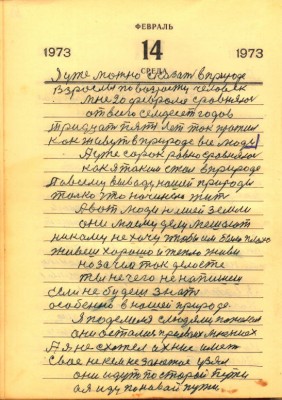 ФЕВРАЛЬ
1973 14 1973
СРЕДА
Я уже можно сказат в природе
Взрослы по возрасту человек
мне 20 февраля сровнялос
от всего семдесет годов
Тридцать пят лет так прожил
как живут в природе все люди
А уже сорок ровно сровнялос
как я таким стал в природе
По всему выводу нашей природы
только что начинаю жит
А вот люди на ней земли
они моему делу мешают
никому не хочу чтобы им было плохо
живеш хорошо и тепло живи
но за что так делоете
ты ничего не напишеш
если не будеш знат
особенно в нашей природе.
Я поделился с людями
они остались при тех мнениях
А я не схотел их них имет
свое некем не занятое узял
они идут по старой пути
а я иду по новай пути